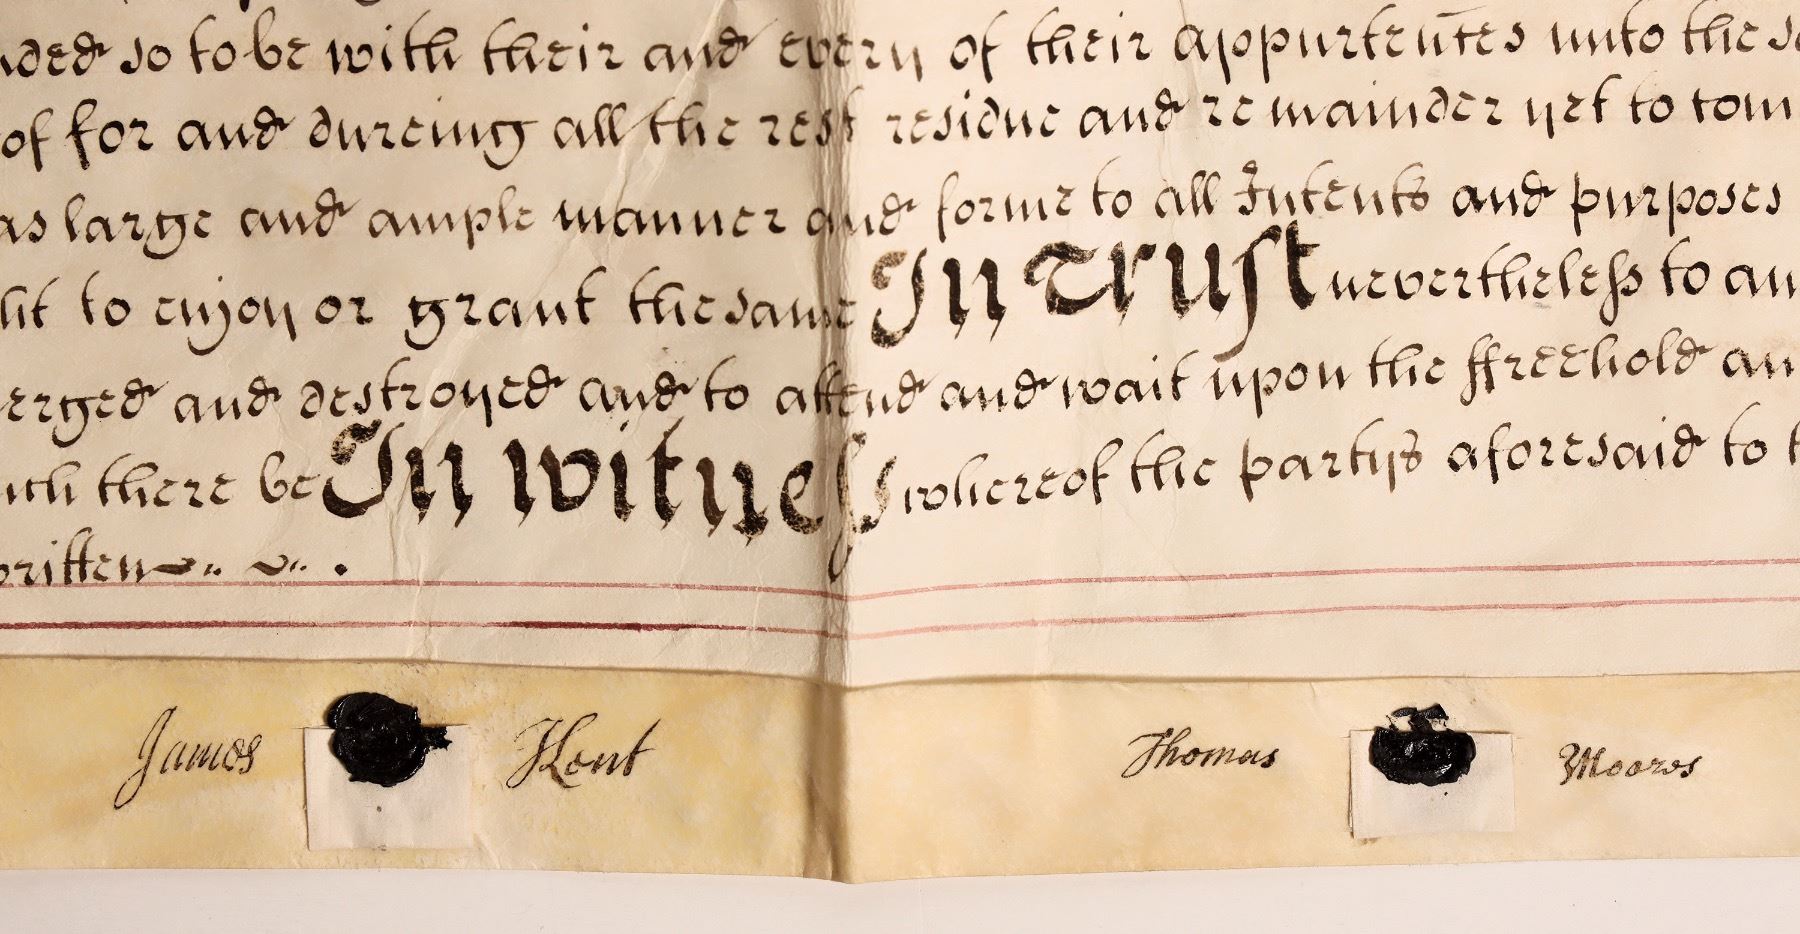 nded so to be with their and every of their appurten̄tes unto the sa
of for and dureing all the rest residue and remainder yet to com
as large and ample manner and forme to all Intents and purposes
ht to enjoy or grant the same In Trust nevertheless to an
erged and destroyed and to attend and wait upon the ffreehold an
uch there be In witness whereof the partyes aforesaid to t
written
James Kent Thomas Moores